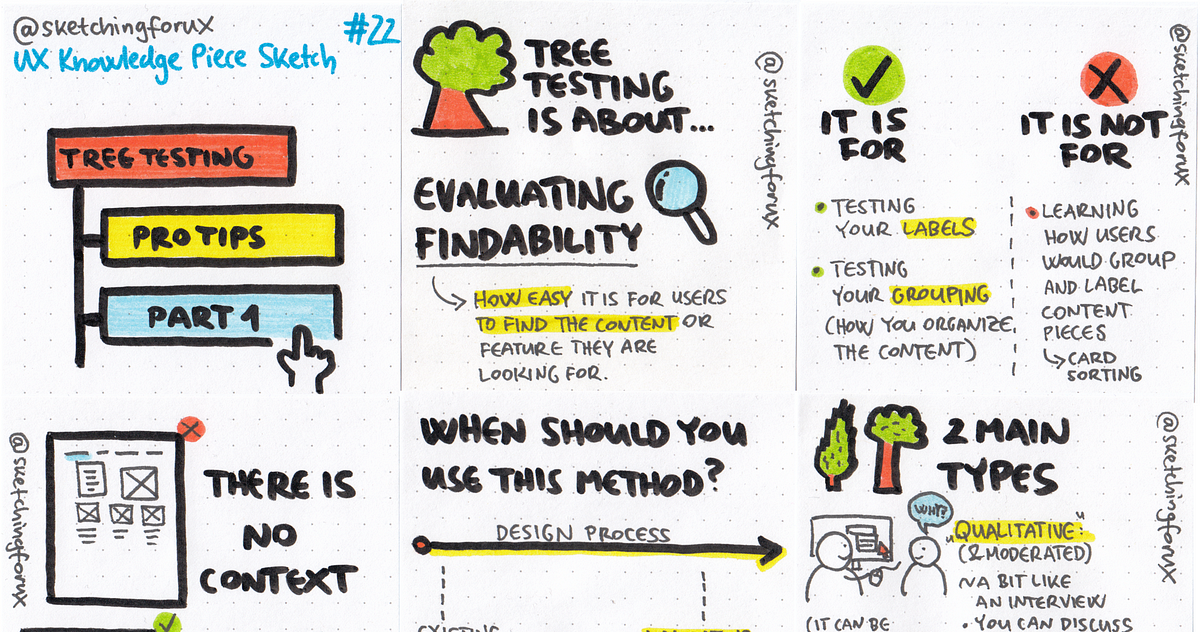 @sketchingforux
#22
UX Knowledge Piece Sketch
TREE TESTING
PRO TIPS
PART 1
TREE
TESTING
IS ABOUT...
EVALUATING
FINDABILITY
HOW EASY IT IS FOR USERS
TO FIND THE CONTENT OR
FEATURE THEY ARE
LOOKING FOR.
@sketchingforux
IT IS
FOR
TESTING
YOUR LABELS
TESTING
YOUR GROUPING
(HOW YOU ORGANIZE
THE CONTENT)
IT IS NOT
FOR
LEARNING
HOW USERS
WOULD GROUP
AND LABEL
CONTENT
PIECES
CARD
SORTING
@sketchingforux
@sketchingforux
THERE IS
NO
CONTEXT
WHEN SHOULD YOU
USE THIS METHOD?
DESIGN PROCESS
2 MAIN
TYPES
WHY?
"QUALITATIVE"
(& MODERATED)
~A BIT LIKE
AN INTERVIEW
• YOU CAN DISCUSS
(IT CAN BE
@sketchingforux